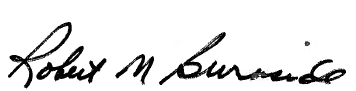 Robert M Burnside